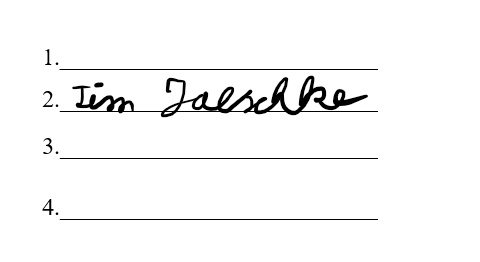 1.
2. Tim Jaeschke
3.
4.